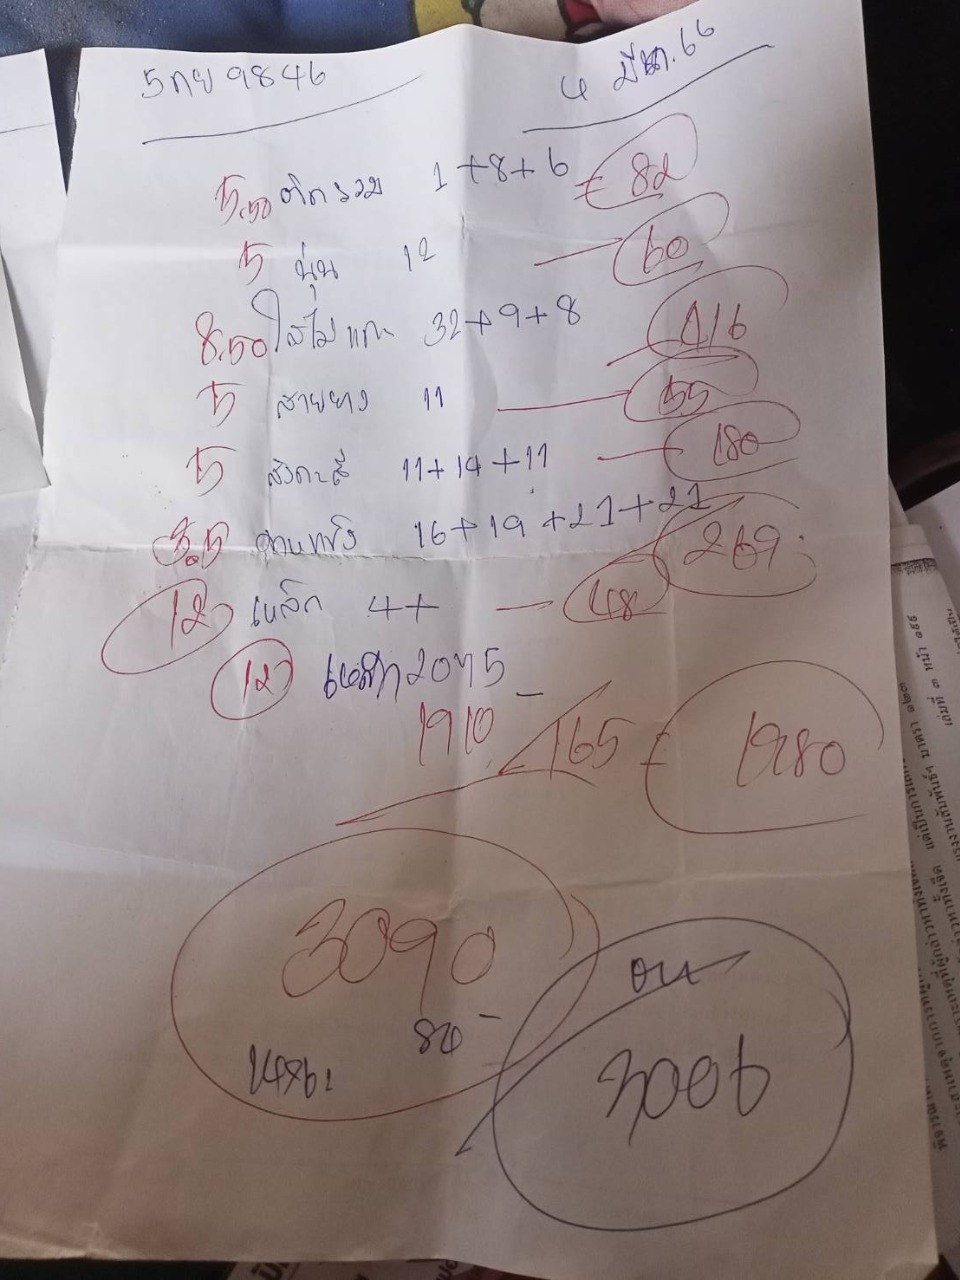 5 กย 9846
4 มีนา.66
5.50 ติดรวม 1+8+6 = 82
5 นุ่น 12 — 60
8.50 ใสไม่แกะ 32+9+8 416
5 สายยาง 11 — 55
5 สังกะสี 11+14+11 — 180
3.5 16+19+21+21 269
12 เหล็ก 4+ — 48
12 เหล็ก 2075 —
1910 165 = 1980
3090
84 —
โอน
3006